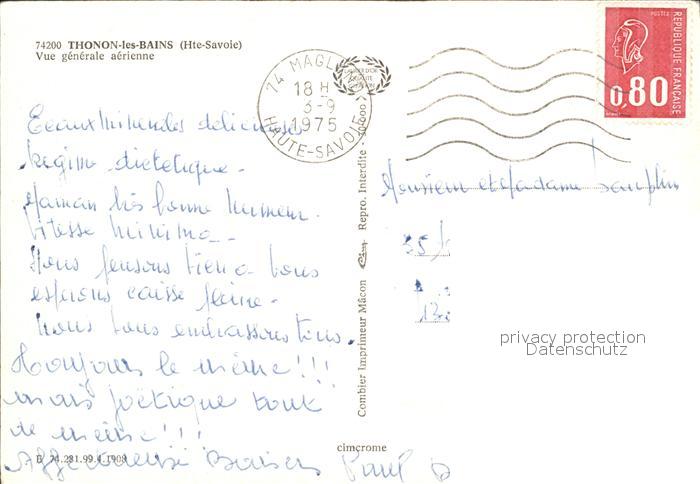 74200 THONON-les-BAINS (Hte-Savoie)
Vue générale aérienne
74 MAGL
18 H
3-9
1975
HAUTE-SAVOIE
POSTES
REPUBLIQUE FRANÇAISE
0,80
Eeaux minerales délicieuses
Regime dietetique.
Maman très bonne humeur.
Vitesse minima.
Nous pensons bien a vous
esperons caisse pleine.
Nous vous embrassons tous.
Toujours le même!!!
mais poëtique tout
de même!!!
Affectueux Baisers Paul
Monsieur et Madame
35
Combier Imprimeur Mâcon
Repro. Interdite
cimcrome
D 74.281.99.4.1908
privacy protection
Datenschutz